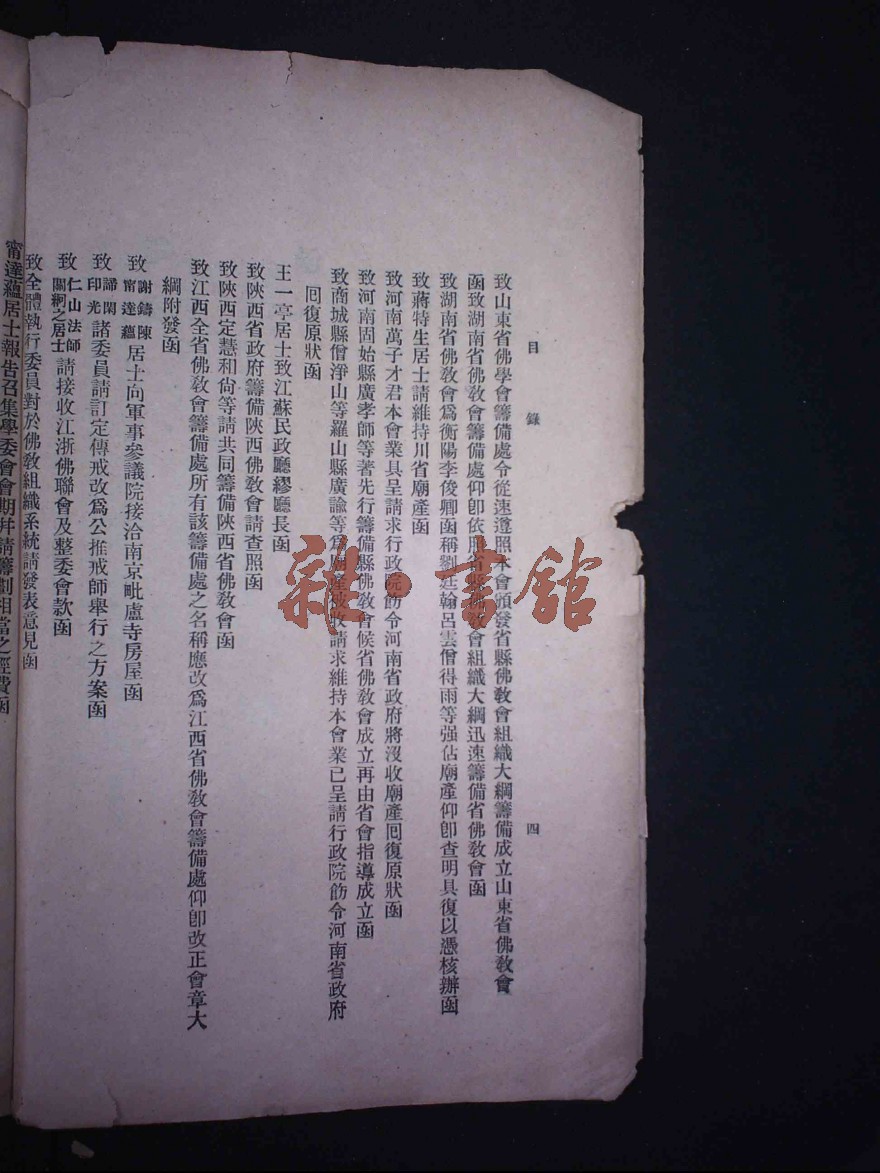 目錄 四
致山東省佛學會籌備處令從速遵照本會頒發省縣佛教會組織大綱籌備成立山東省佛教會
函致湖南省佛教會籌備處仰卽依照省縣佛教會組織大綱迅速籌備省佛教會函
致湖南省佛教會爲衡陽李俊卿函稱劉廷翰呂雲僧得雨等强佔廟產仰卽查明具復以憑核辦函
致蔣特生居士請維持川省廟產函
致河南萬子才君本會業具呈請求行政院飭令河南省政府將沒收廟產囘復原狀函
致河南固始縣廣孝師等著先行籌備縣佛教會候省佛教會成立再由省會指導成立函
致商城縣僧淨山等羅山縣廣論等爲廟產被收請求維持本會業已呈請行政院飭令河南省政府
囘復原狀函
王一亭居士致江蘇民政廳繆廳長函
致陝西省政府籌備陝西佛教會請查照函
致陝西定慧和尙等請共同籌備陝西省佛教會函
致江西全省佛教會籌備處所有該籌備處之名稱應改爲江西省佛教會籌備處仰卽改正會章大
綱附發函
致謝鑄陳甯達蘊居士向軍事參議院接洽南京毗盧寺房屋函
致諦閑印光諸委員請訂定傳戒改爲公推戒師舉行之方案函
致仁山法師關絅之居士請接收江浙佛聯會及整委會款函
致全體執行委員對於佛教組織系統請發表意見函
甯達蘊居士報告召集學委會會期幷請籌劃相當之經費函
雜·書館